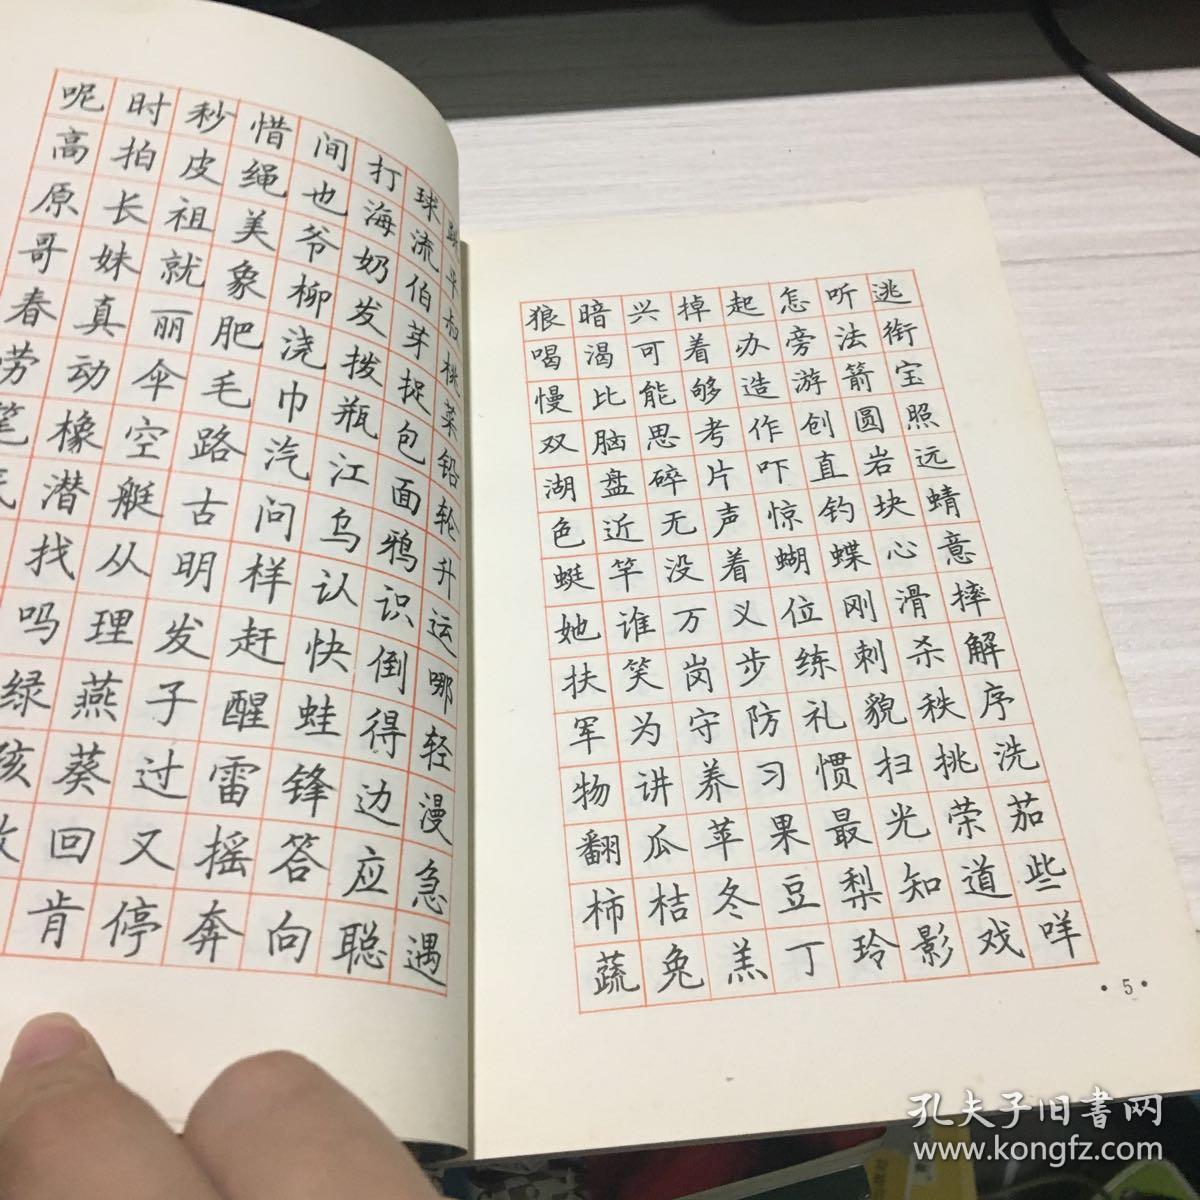 呢时秒惜间打球
高拍皮绳也海流平
原长祖美爷奶伯叔
哥妹就象柳发芽桃
春真丽肥浇拨捉菜
劳动伞毛巾瓶包铅
笔橡空路汽江面轮
潜艇古问乌鸦升
找从明样认识运
吗理发赶快倒哪
绿燕子醒蛙得轻
孩葵过雷锋边漫
回又摇答应急
肯停奔向聪遇
狼暗兴掉起怎听逃
喝渴可着办旁法衔
慢比能够造游箭宝
双脑思考作创圆照
湖盘碎片吓直岩远
色近无声惊钓块蜻
蜓竿没着蝴蝶心意
她谁万义位刚滑摔
扶笑岗步练刺杀解
军为守防礼貌秩序
物讲养习惯扫挑洗
翻瓜苹果最光荣茄
柿桔冬豆梨知道些
蔬兔羔丁玲影戏咩
·5·
孔夫子旧书网
www.kongfz.com